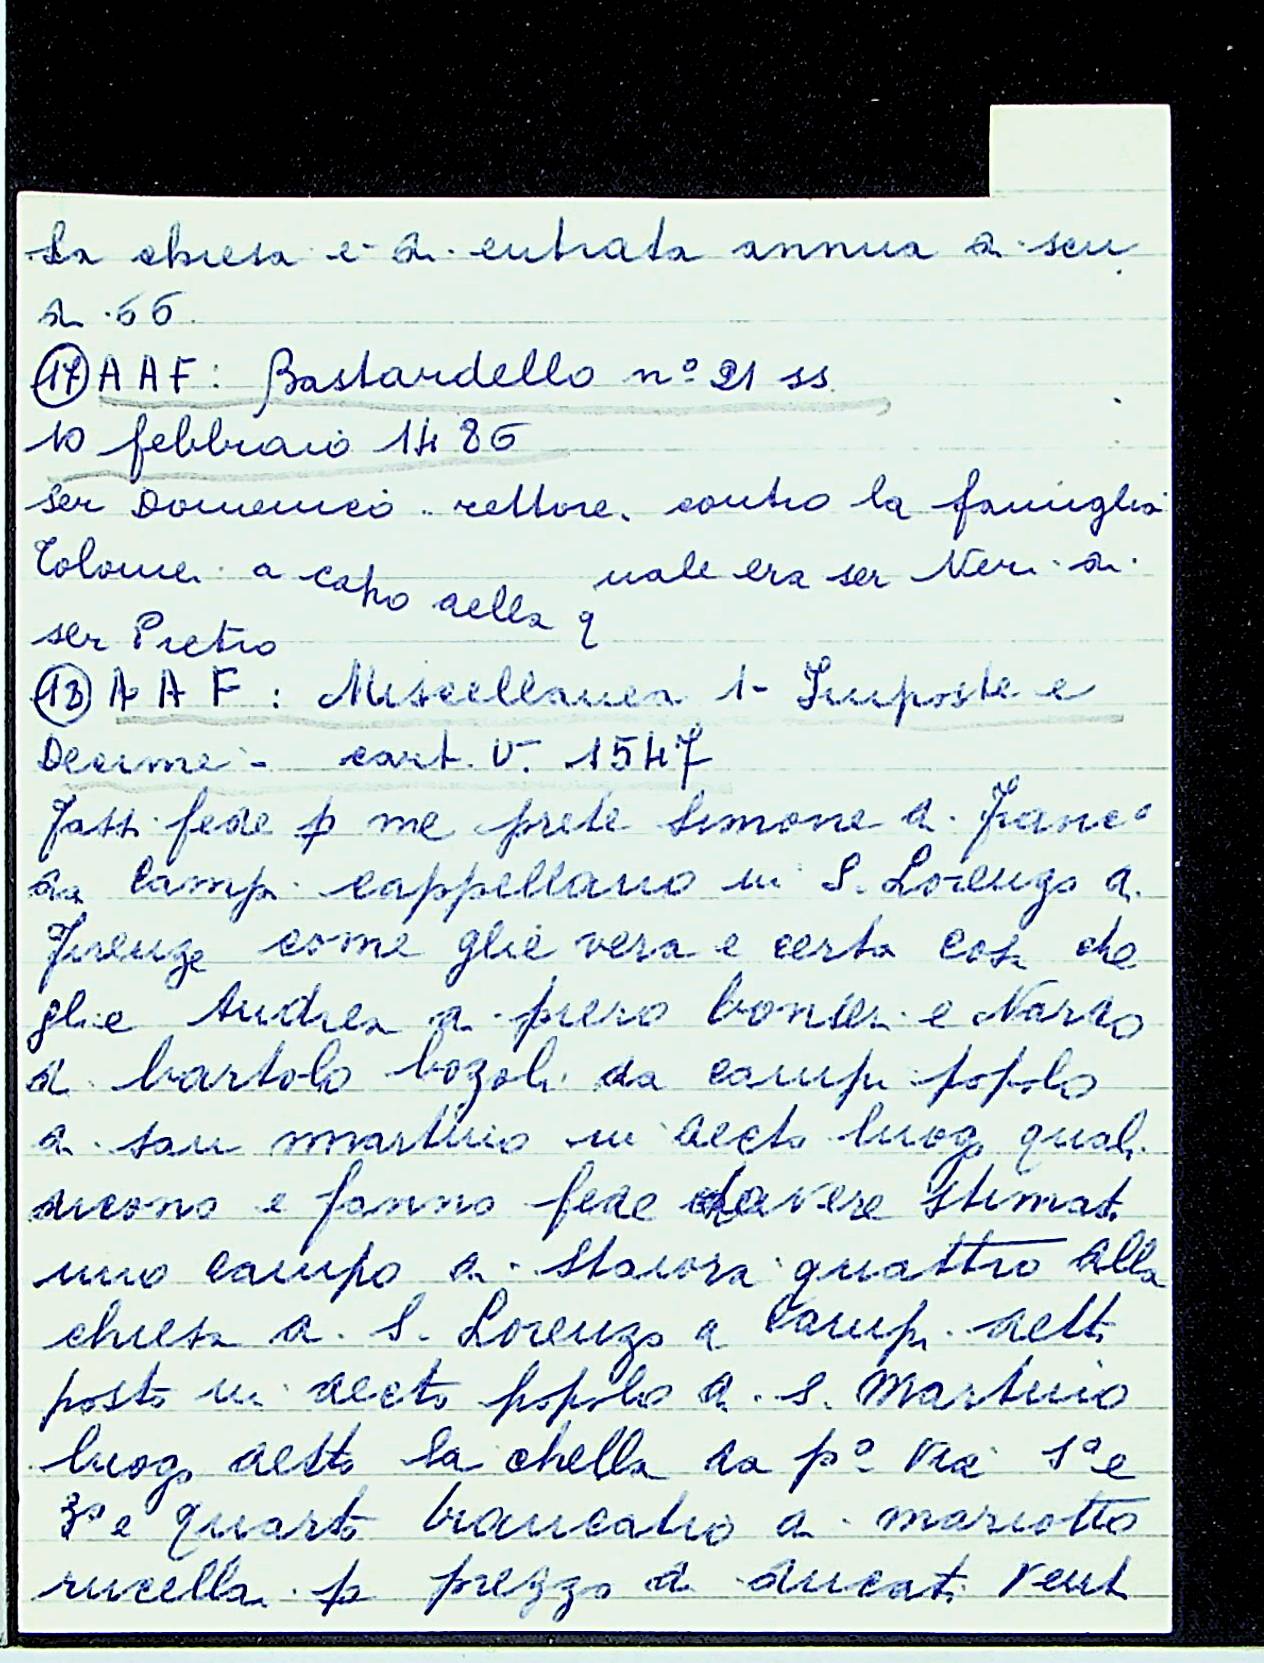 La chiesa è di entrata annua di scu
di 66
(17) A A F: Bastardello n° 21 ss
10 febbraio 1486
ser Domenico rettore. contro la famiglia
Tolomei a capo della quale era ser Neri di
ser Pietro
(18) A A F : Miscellanea 1- Imposte e
Decime - cart. V. 1547
Fassi fede p me prete Simone di Franc°
da Campi cappellano in S. Lorenzo di
Firenze come gliè vera e certa cosa che
glie Andrea di piero bonsi e Nardo
di bartolo bozoli da campi popolo
di san martino in decto luogo quali
dicono e fanno fede davere stimato
uno campo di staiora quattro alla
chiesa di S. Lorenzo a Campi detto
posto in decto popolo di S. Martino
luogo detto la chella da p° via 1° e
3° e quarto brancatio di mariotto
rucellai p prezzo di ducati vent